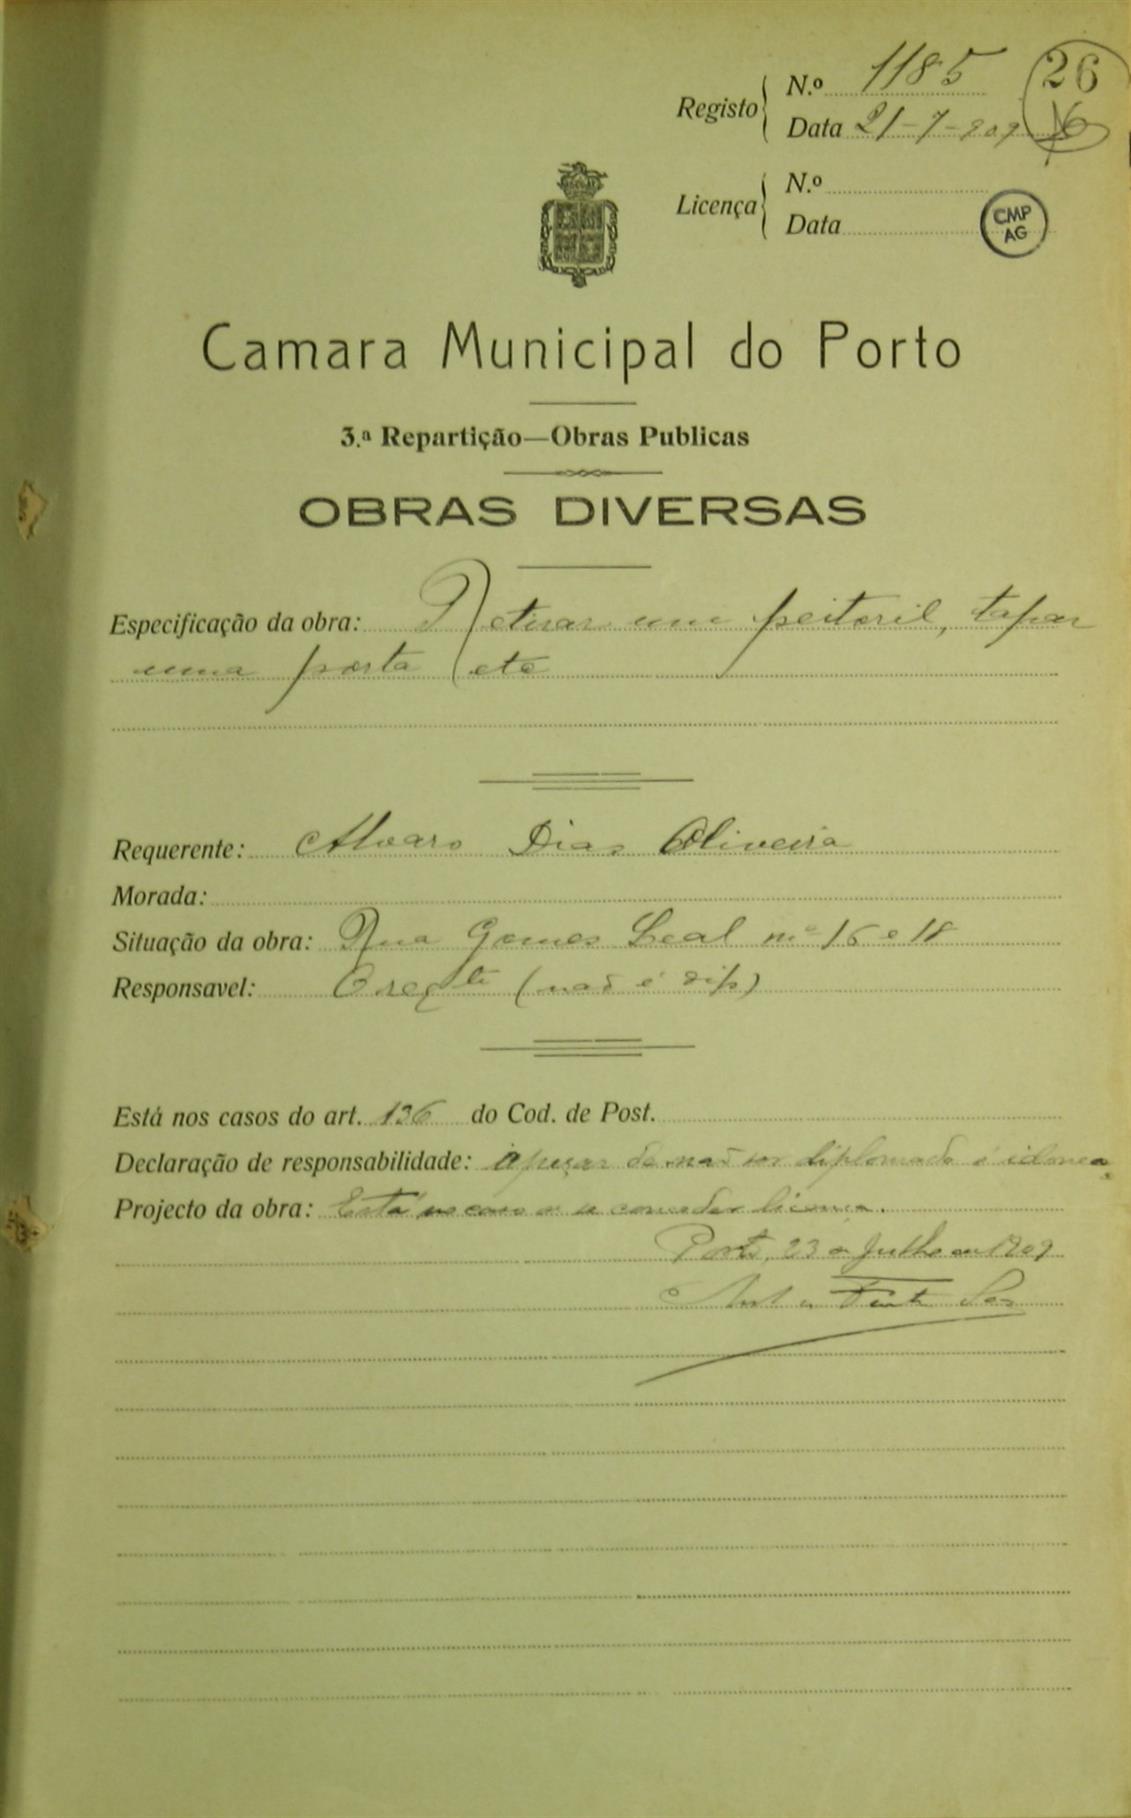 26
Registo N.º 1185
Data 21-7-909
Licença N.º
Data
CMP
AG
Camara Municipal do Porto
3.ª Repartição—Obras Publicas
OBRAS DIVERSAS
Especificação da obra: Retirar um peitoril, tapar
uma porta etc
Requerente: Alvaro Dias Oliveira
Morada:
Situação da obra: Rua Gomes Leal nº 16 e 18
Responsavel: O reqte (não é dip)
Está nos casos do art. 136 do Cod. de Post.
Declaração de responsabilidade: Apezar de não ser diplomado é idonea.
Projecto da obra: Está no caso de se conceder licença.
Porto, 23 de Julho de 1909